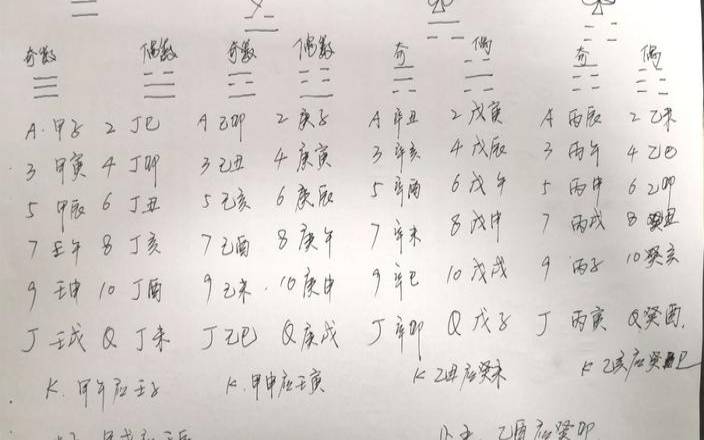 奇数 偶数 奇数 偶数 奇 偶 奇 偶
A. 甲子 2 丁巳 A 乙卯 2 庚子 A 辛丑 2 戊寅 A 丙辰 2 乙未
3 甲寅 4 丁卯 3 乙丑 4 庚寅 3 辛亥 4 戊辰 3 丙午 4 乙巳
5 甲辰 6 丁丑 5 乙亥 6 庚辰 5 辛酉 6 戊午 5 丙申 6 乙卯
7 壬午 8 丁亥 7 乙酉 8 庚午 7 辛未 8 戊申 7 丙戌 8 癸丑
9 壬申 10 丁酉 9 乙未. 10 庚申 9 辛巳 10 戊戌 9 丙子 10 癸亥
J 壬戌 Q 丁未 J 乙巳 Q 庚戌 J 辛卯 Q 戊子 J 丙寅 Q 癸酉.
K. 甲午应壬子 K. 甲申应壬寅 K 乙丑应癸未 K 乙亥应癸巳
乙酉应癸卯